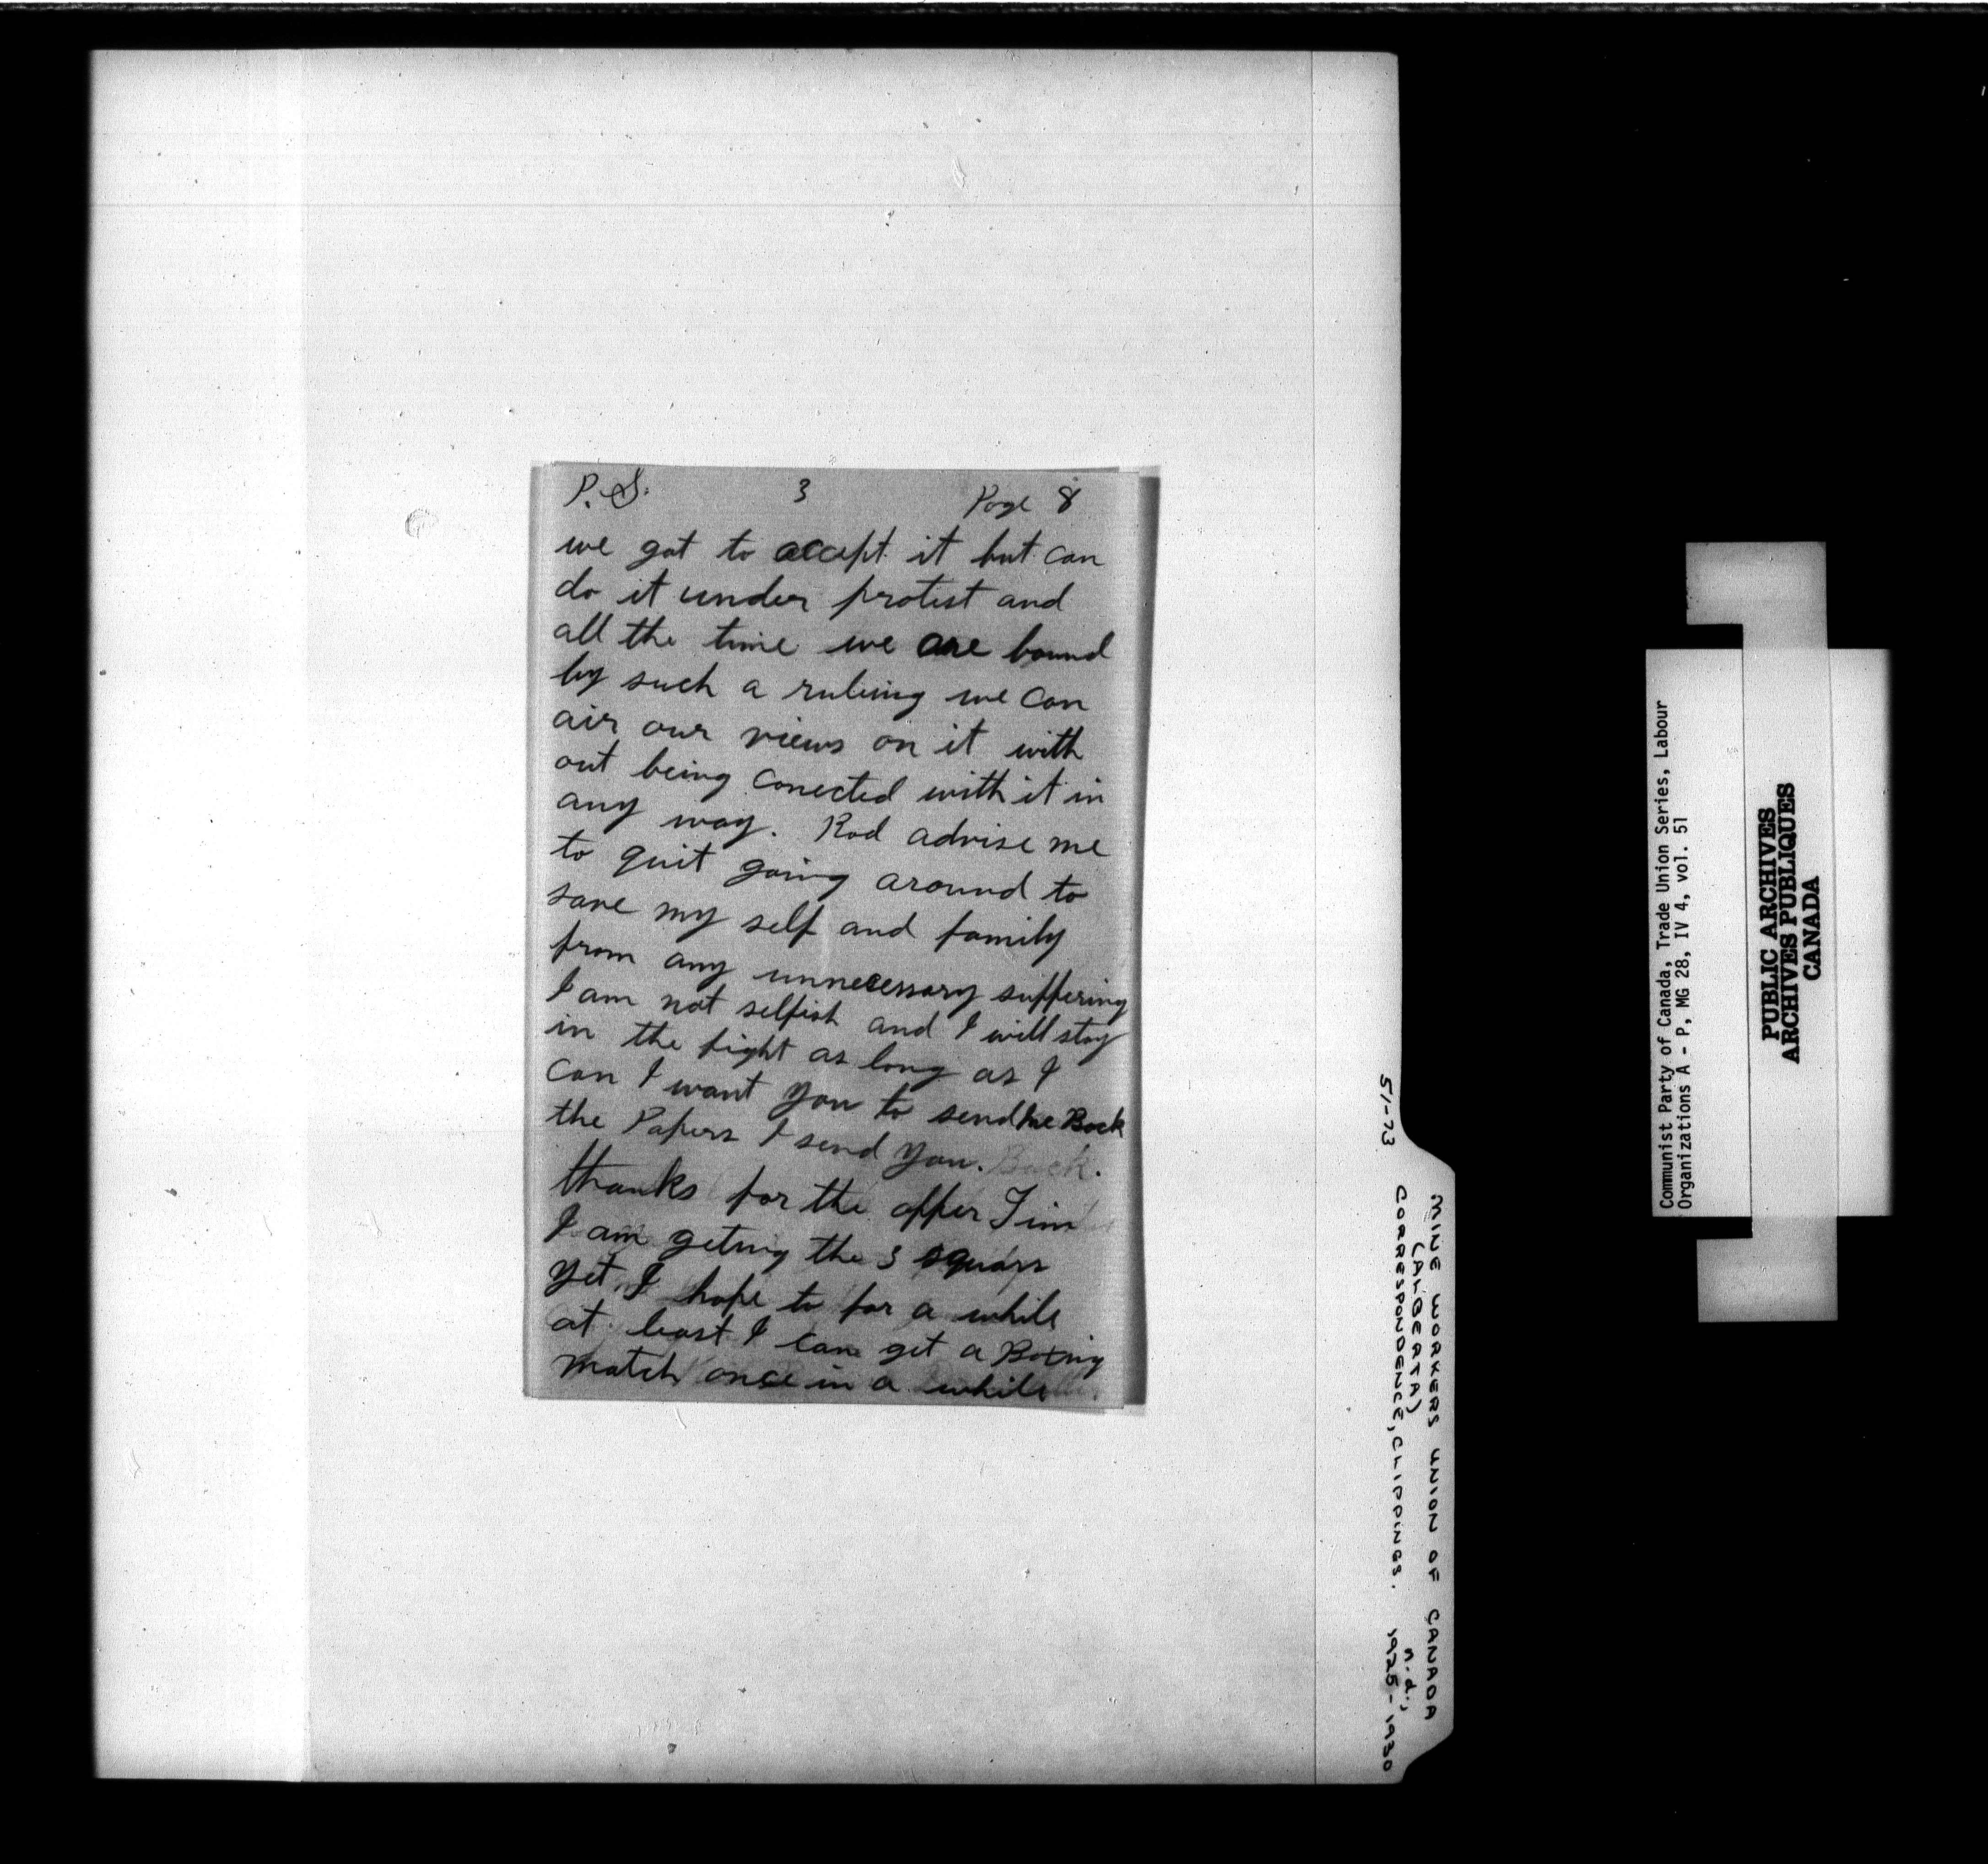 P.S. 3 Page 8
we got to accept it but can
do it under protest and
all the time we are bound
by such a ruling we can
air our views on it with
out being conected with it in
any way. Rod advise me
to quit going around to
save my self and family
from any unnecessary suffering
I am not selfish and I will stay
in the fight as long as I
can I want you to send me Back
the Papers I send you. Back.
thanks for the offer Tim
I am geting the 3 squars
yet, I hope to for a while
at least I can get a Boxing
match once in a while
51-73
MINE WORKERS UNION OF CANADA
(ALBERTA)
CORRESPONDENCE, CLIPPINGS. n.d., 1925-1930
Communist Party of Canada, Trade Union Series, Labour
Organizations A - P, MG 28, IV 4, vol. 51
PUBLIC ARCHIVES
ARCHIVES PUBLIQUES
CANADA